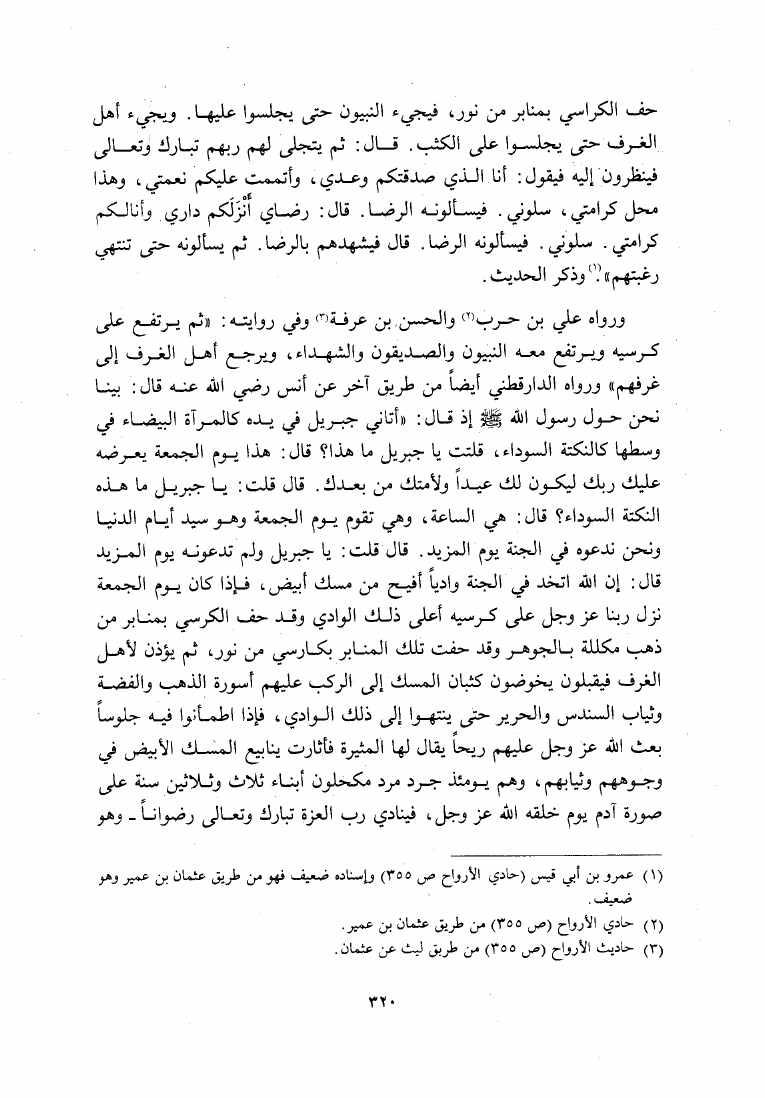 حف الكراسي بمنابر من نور، فيجيء النبيون حتى يجلسوا عليها. ويجيء أهل
الغرف حتى يجلسوا على الكثب. قال: ثم يتجلى لهم ربهم تبارك وتعالى
فينظرون إليه فيقول: أنا الذي صدقتكم وعدي، وأتممت عليكم نعمتي، وهذا
محل كرامتي، سلوني. فيسألونه الرضا. قال: رضاي أنْزَلَكم داري وأنالكم
كرامتي. سلوني. فيسألونه الرضا. قال فيشهدهم بالرضا. ثم يسألونه حتى تنتهي
رغبتهم»(١). وذكر الحديث.
ورواه علي بن حرب(٢) والحسن بن عرفة(٣) وفي روايته: «ثم يرتفع على
كرسيه ويرتفع معه النبيون والصديقون والشهداء، ويرجع أهل الغرف إلى
غرفهم» ورواه الدارقطني أيضاً من طريق آخر عن أنس رضي الله عنه قال: بينا
نحن حول رسول الله ﷺ إذ قال: «أتاني جبريل في يده كالمرآة البيضاء في
وسطها كالنكتة السوداء، قلت يا جبريل ما هذا؟ قال: هذا يوم الجمعة يعرضه
عليك ربك ليكون لك عيداً ولأمتك من بعدك. قال قلت: يا جبريل ما هذه
النكتة السوداء؟ قال: هي الساعة، وهي تقوم يوم الجمعة وهو سيد أيام الدنيا
ونحن ندعوه في الجنة يوم المزيد. قال قلت: يا جبريل ولم تدعونه يوم المزيد
قال: إن الله اتخد في الجنة وادياً أفيح من مسك أبيض، فإذا كان يوم الجمعة
نزل ربنا عز وجل على كرسيه أعلى ذلك الوادي وقد حف الكرسي بمنابر من
ذهب مكللة بالجوهر وقد حفت تلك المنابر بكارسي من نور، ثم يؤذن لأهل
الغرف فيقبلون يخوضون كثبان المسك إلى الركب عليهم أسورة الذهب والفضة
وثياب السندس والحرير حتى ينتهوا إلى ذلك الوادي، فإذا اطمأنوا فيه جلوساً
بعث الله عز وجل عليهم ريحاً يقال لها المثيرة فأثارت ينابيع المسك الأبيض في
وجوههم وثيابهم، وهم يومئذ جرد مرد مكحلون أبناء ثلاث وثلاثين سنة على
صورة آدم يوم خلقه الله عز وجل، فينادي رب العزة تبارك وتعالى رضواناً - وهو
(١) عمرو بن أبي قيس (حادي الأرواح ص ٣٥٥) وإسناده ضعيف فهو من طريق عثمان بن عمير وهو
ضعيف.
(٢) حادي الأرواح (ص ٣٥٥) من طريق عثمان بن عمير.
(٣) حاديث الأرواح (ص ٣٥٥) من طريق ليث عن عثمان.
٣٢٠